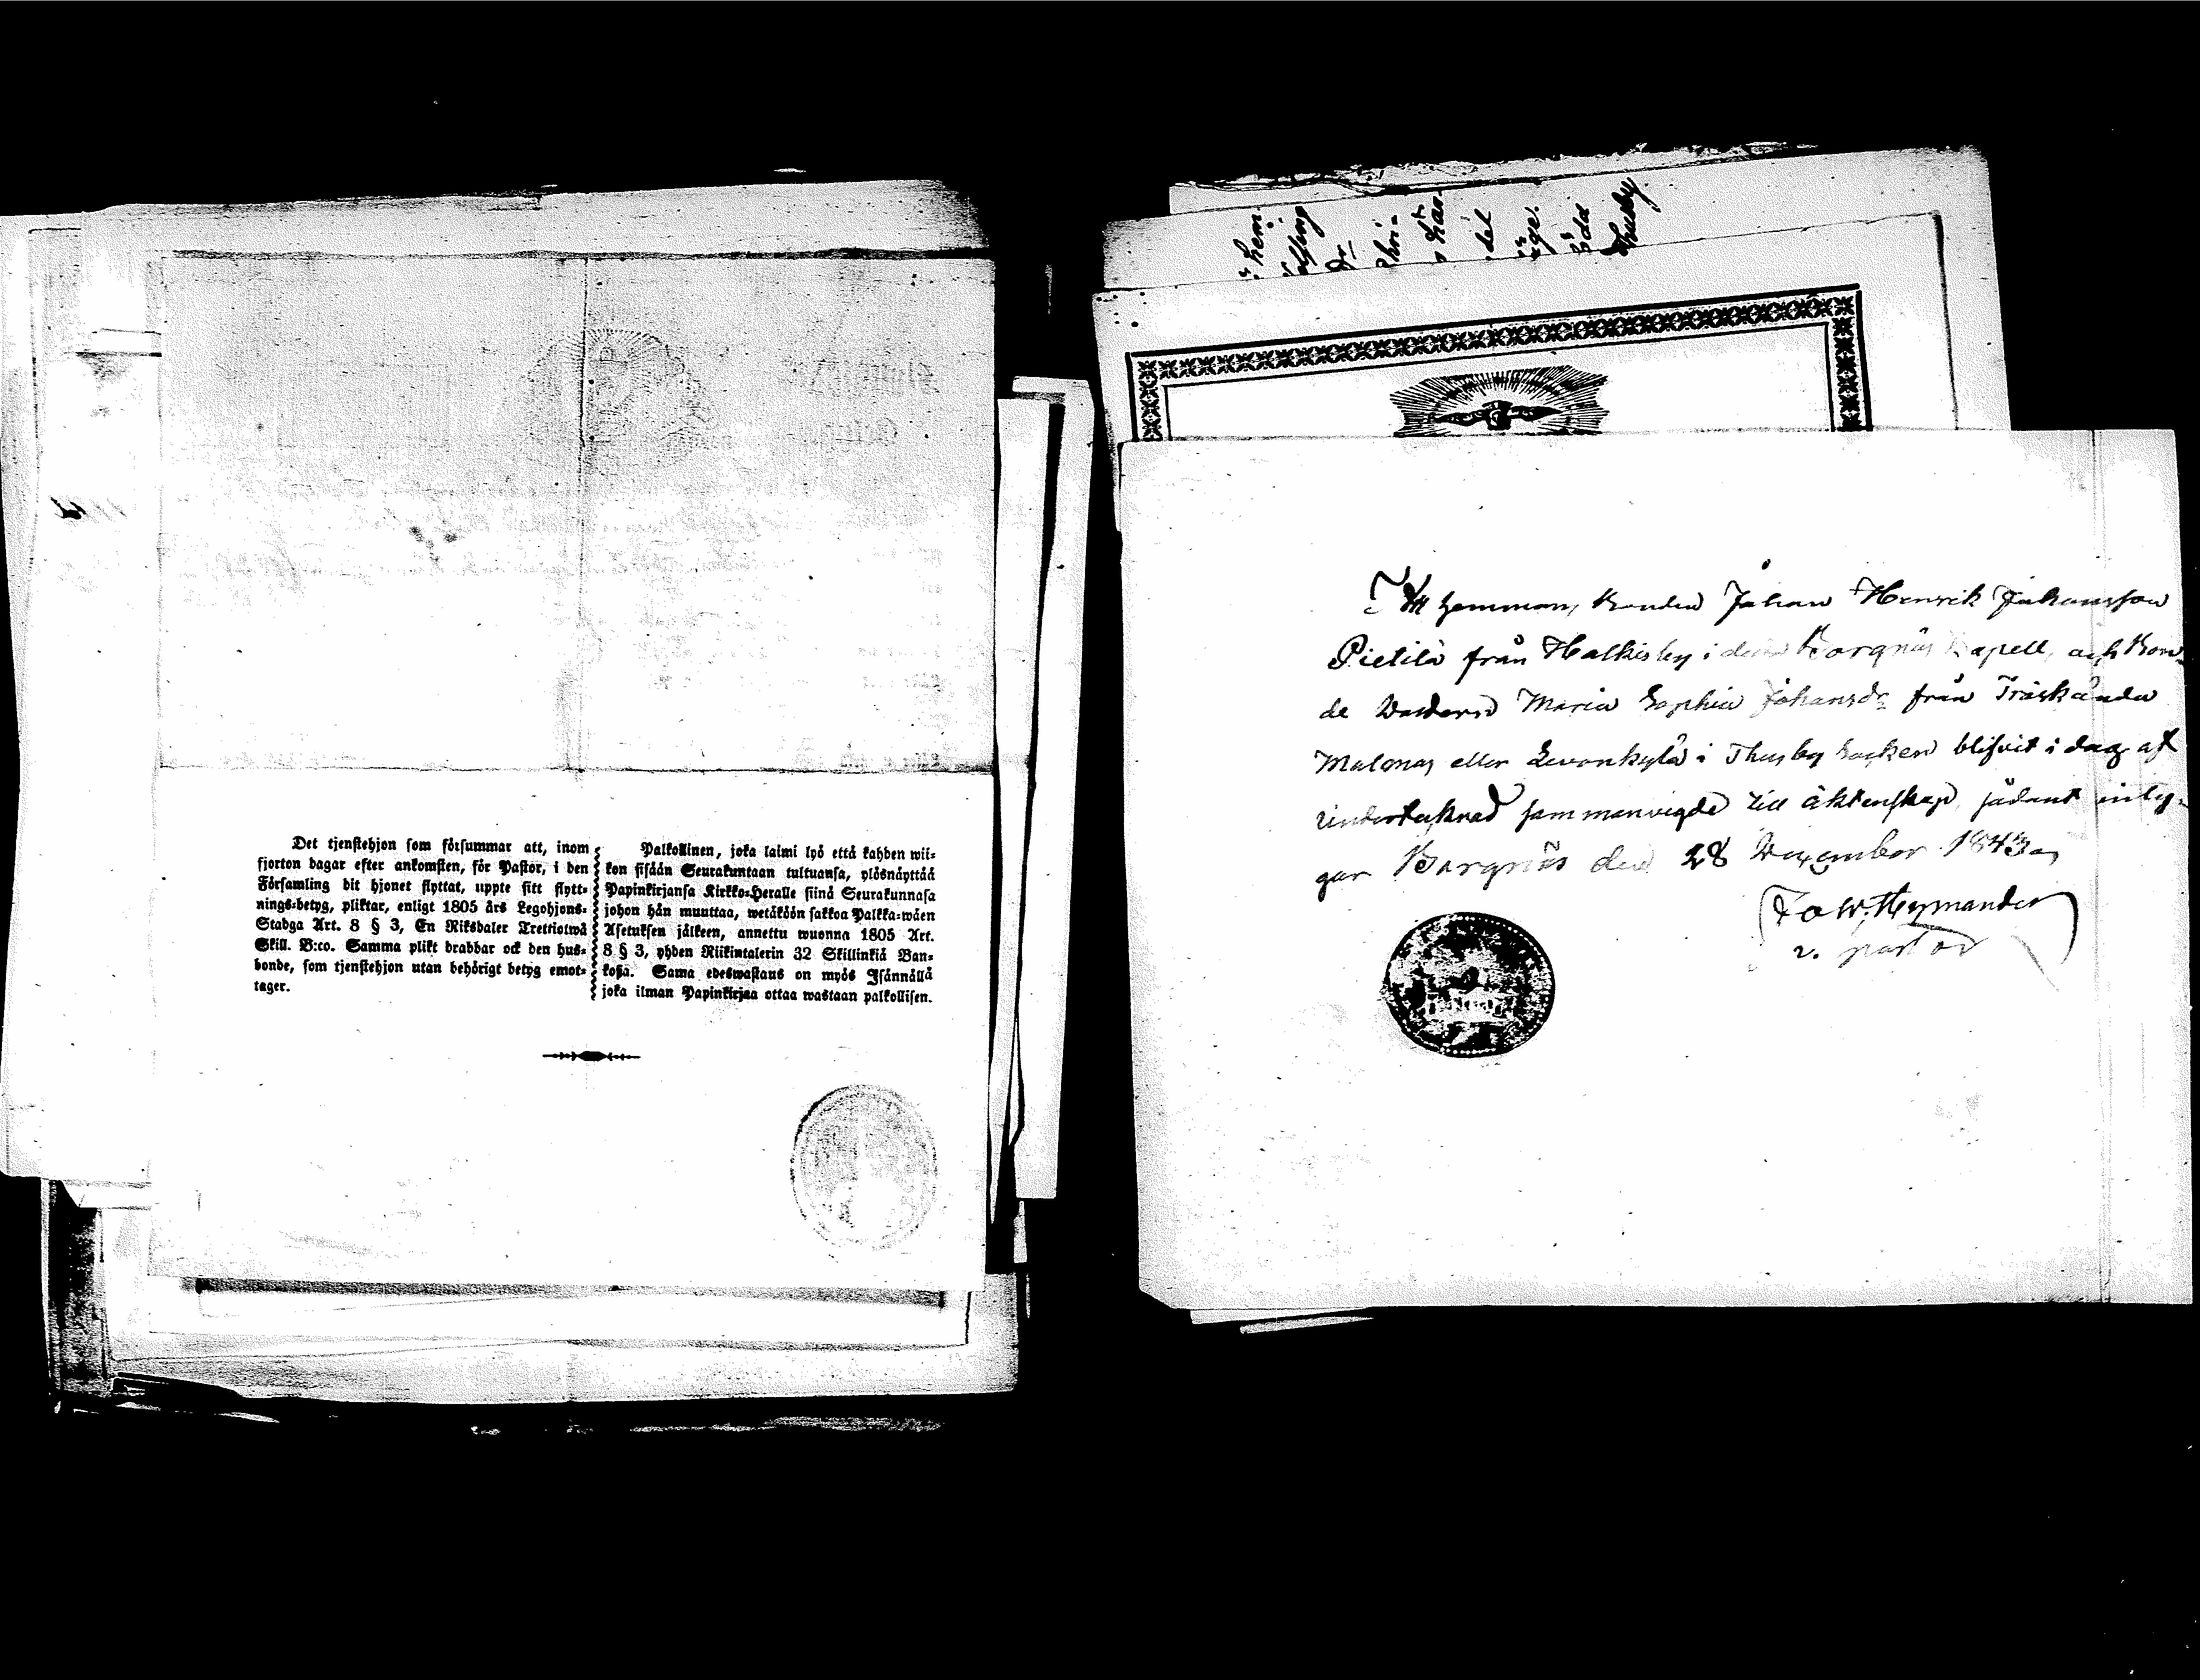 Det tjenstehjon som försummar att, inom
fjorton dagar efter ankomsten, för Pastor, i den
Församling dit hjonet flyttat, uppte sitt flytt-
nings-betyg, pliktar, enligt 1805 års Legohjons-
Stadga Art. 8 § 3, En Riksdaler Trettiotwå
Skill. B:co. Samma plikt drabbar ock den hus-
bonde, som tjenstehjon utan behörigt betyg emot-
tager.
Palkollinen, joka laimi lyö että kahden wii-
kon sisään Seurakuntaan tultuansa, ylösnäyttää
Papinkirjansa Kirkko-Heralle siinä Seurakunnasa
johon hän muuttaa, wetäköön sakkoa Palkka-wäen
Asetuksen jälkeen, annettu wuonna 1805 Art.
8 § 3, yhden Riikintalerin 32 Skillinkiä Ban-
kosa. Sama edeswastaus on myös Isännällä
joka ilman Papinkirjaa ottaa wastaan palkollisen.
hem.
Johan Henrik Johansson
Pietilä från Halkisby i Borgnäs Kapell, och Bon-
de Maria Sophia Johansdr från Träskända
Malmas eller Levonkylä i Thusby Socken blifvit i dag af
undertecknad sammanvigde till äktenskap, sådant inty-
gar Borgnäs den 28 December 1843
W. Heymander
v. pastor